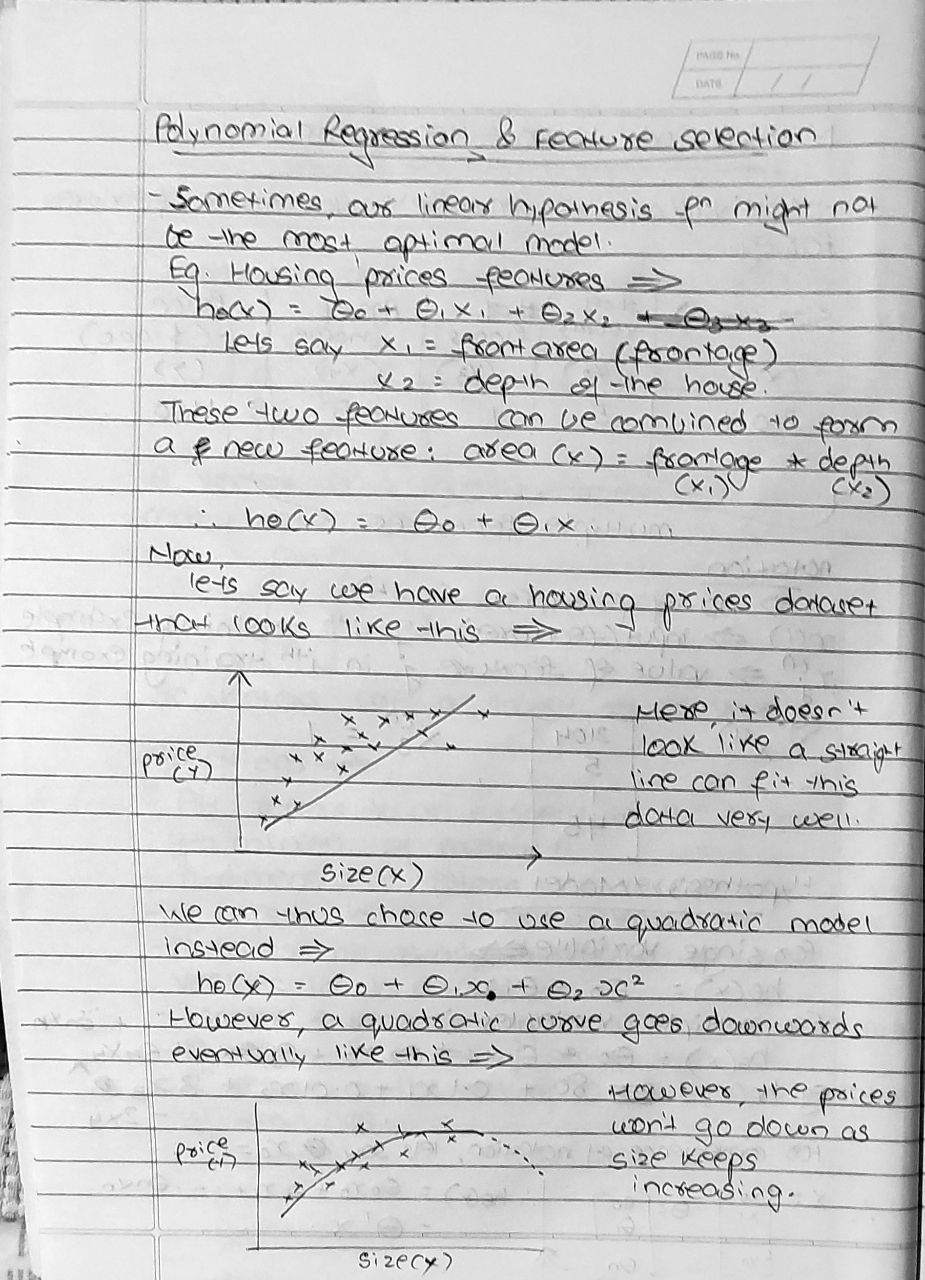 PAGE No.
DATE / /
Polynomial Regression & Feature selection
- Sometimes, our linear hypothesis fn might not
be the most optimal model.
Eg. Housing prices features ⇒
hθ(x) = θ0 + θ1x1 + θ2x2 + θ3x3
Lets say x1 = front area (frontage)
x2 = depth of the house.
These two features can be combined to form
a new feature: area (x) = frontage * depth
(x1) (x2)
∴ hθ(x) = θ0 + θ1x
Now,
lets say we have a housing prices dataset
that looks like this ⇒
Here, it doesn't
look like a straight
line can fit this
data very well.
price
(y)
size(x)
We can thus chose to use a quadratic model
instead ⇒
hθ(x) = θ0 + θ1x + θ2x²
However, a quadratic curve goes downwards
eventually like this ⇒
However, the prices
won't go down as
size keeps
increasing.
price
(y)
size(x)